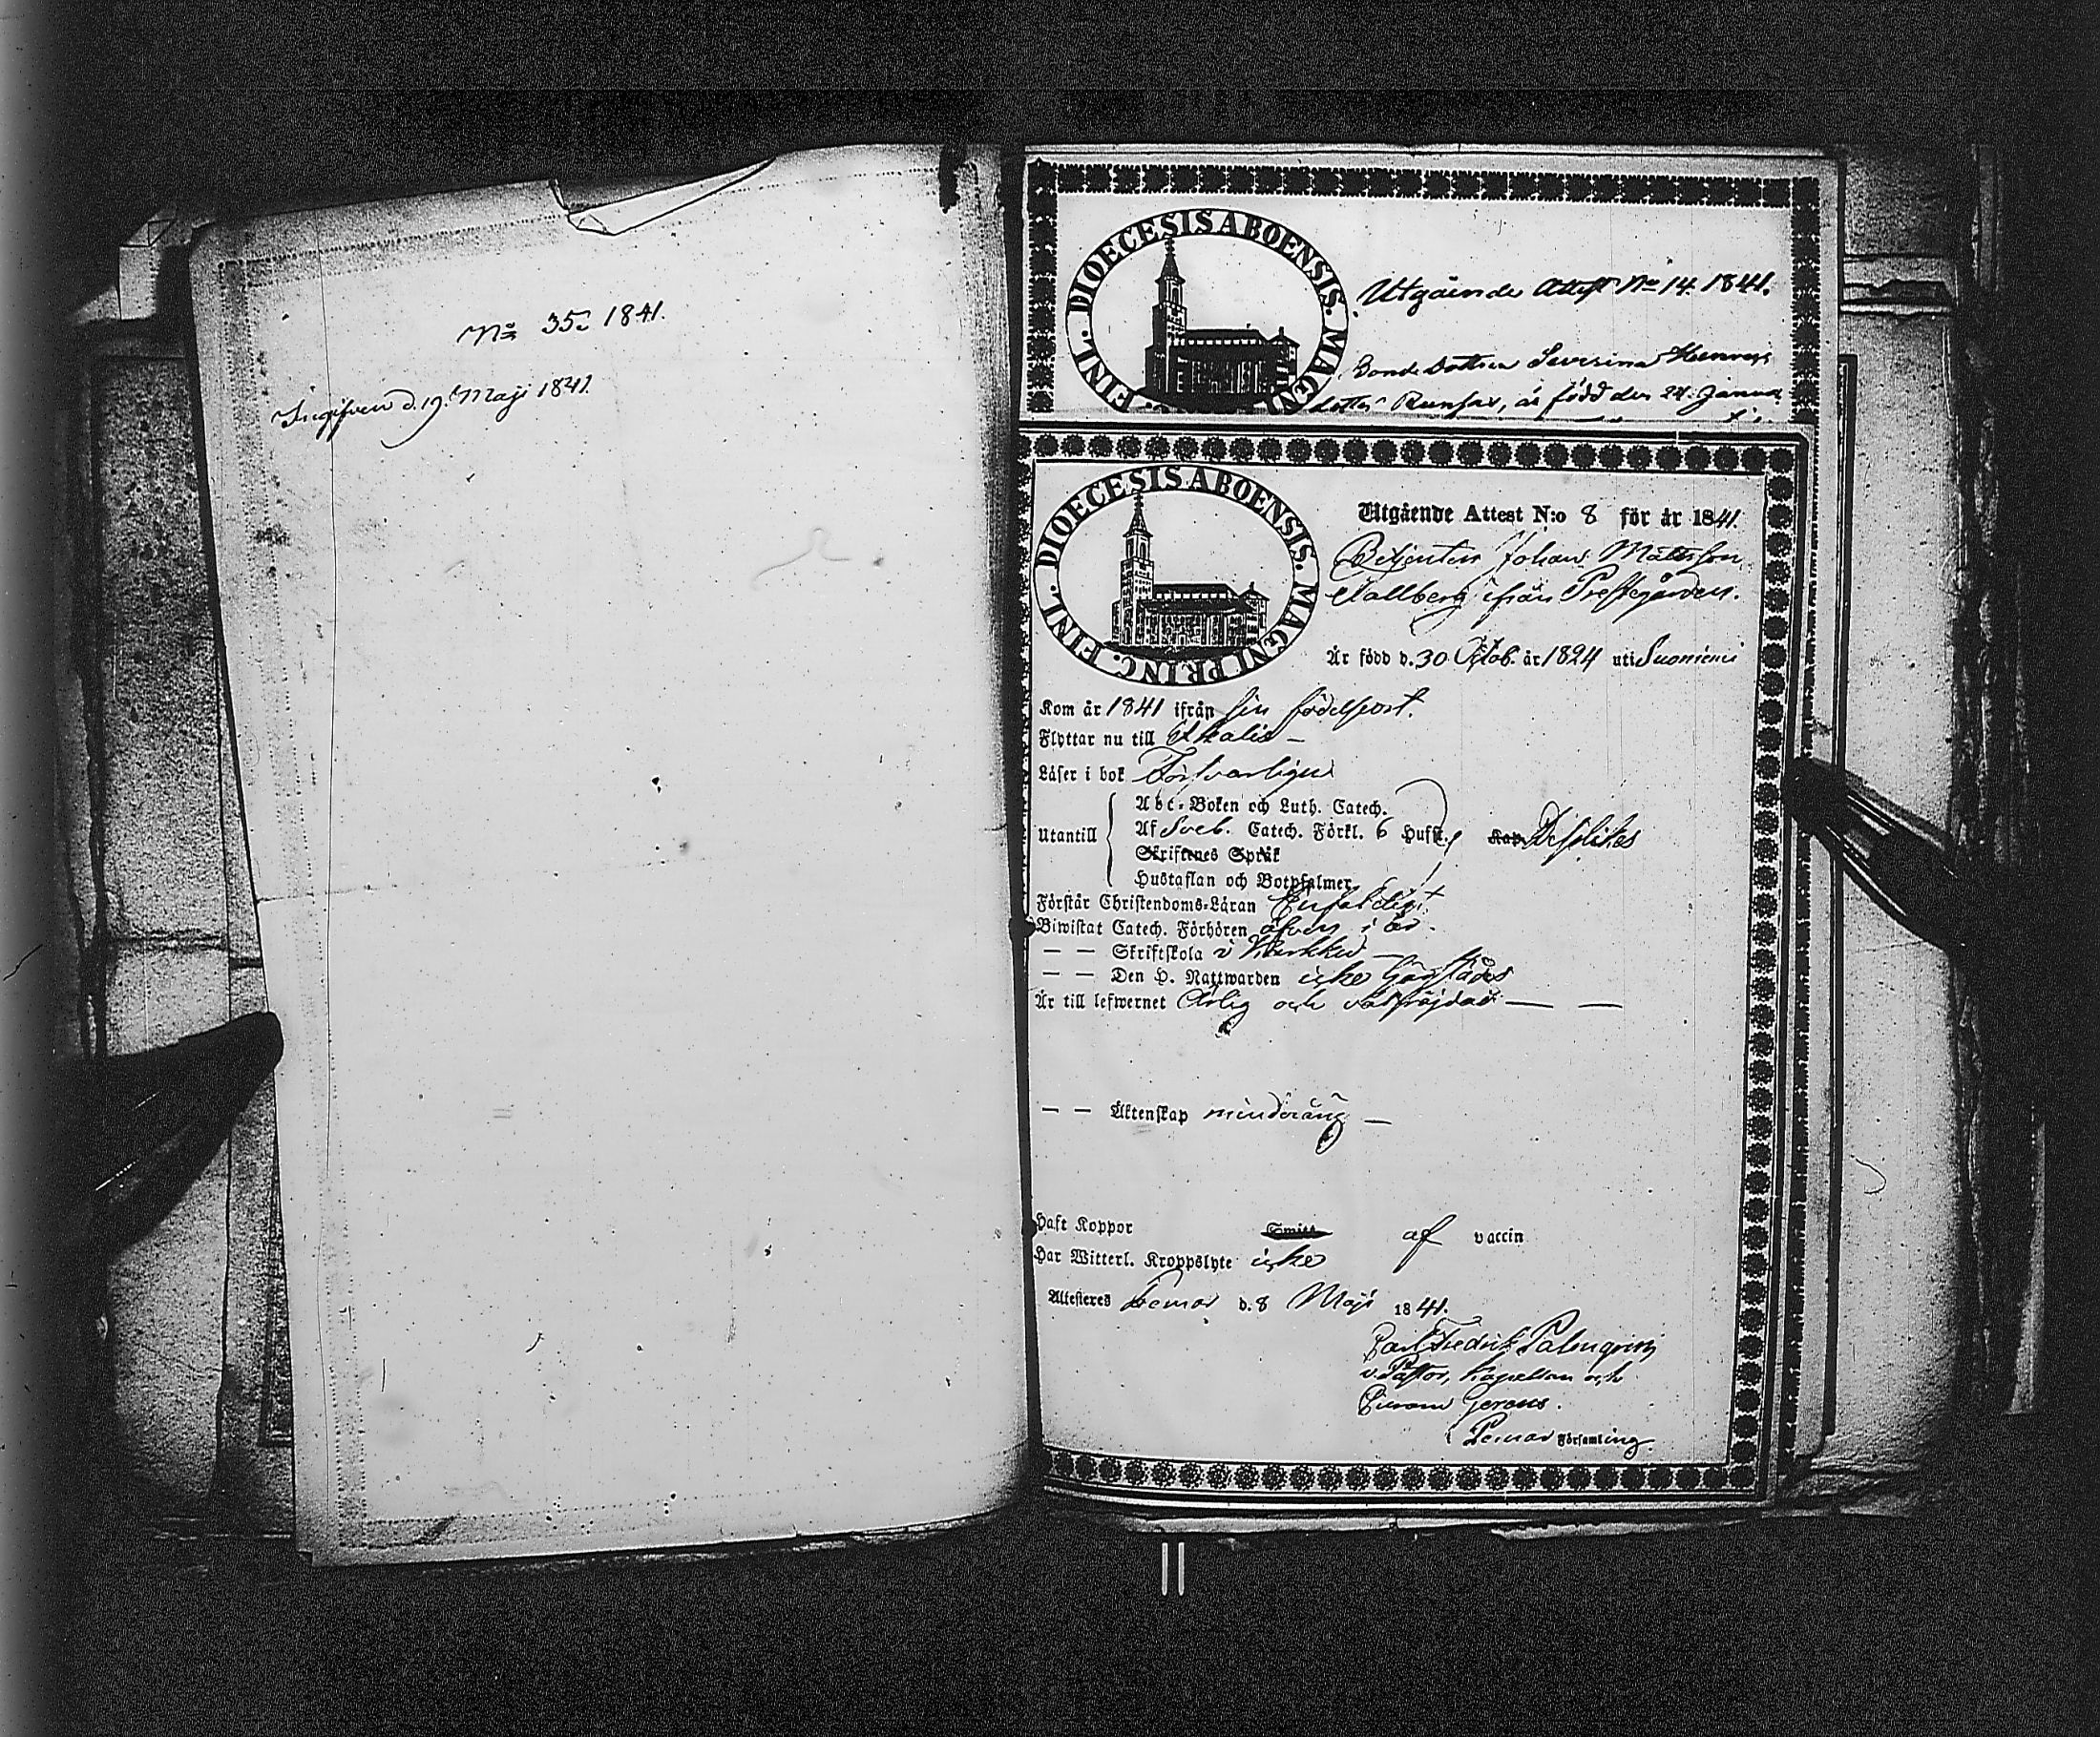 No 35. 1841.
Ingifven d. 19. Maji 1841.
FINL. DIOECESIS ABOENSIS. MAGNI
Utgående Attest No 14. 1841.
Bondedottren Severina Henriks
dotter Runsas, är född den 24. Janua
FINL. DIOECESIS ABOENSIS. MAGNI PRINC.
Utgående Attest N:o 8 för år 1841.
Betjenten Johan Mattsson
Kallberg ifrån Prestegården.
Är född d. 30 Octob. år 1824 uti Suoniemi
Kom år 1841 ifrån sin födelseort.
Flyttar nu till
Läser i bok Försvarligen
Abc-Boken och Luth. Catech.
Utantill Af Sveb. Catech. Förkl. 6 Hufst.
Skriftenes Språk
Hustaflan och Botpsalmer
Förstår Christendoms-Läran Enfaldigt
Biwistat Catech. Förhören äfven i år.
— — Skriftskola
— — Den H. Nattwarden icke
Är till lefwernet Ärlig och välfrejdad — —
— — Äktenskap minderårig —
Haft Koppor af vaccin
Har Witterl. Kroppslyte icke
Attesteres Lemo d. 8 Maji 1841.
Carl Fredrik Palmqvist
v. Pastor, Kapellan och
Lemo Församling